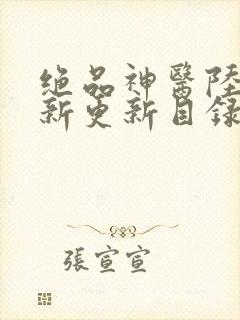 絕品神醫陸
新更新目錄
張宣宣